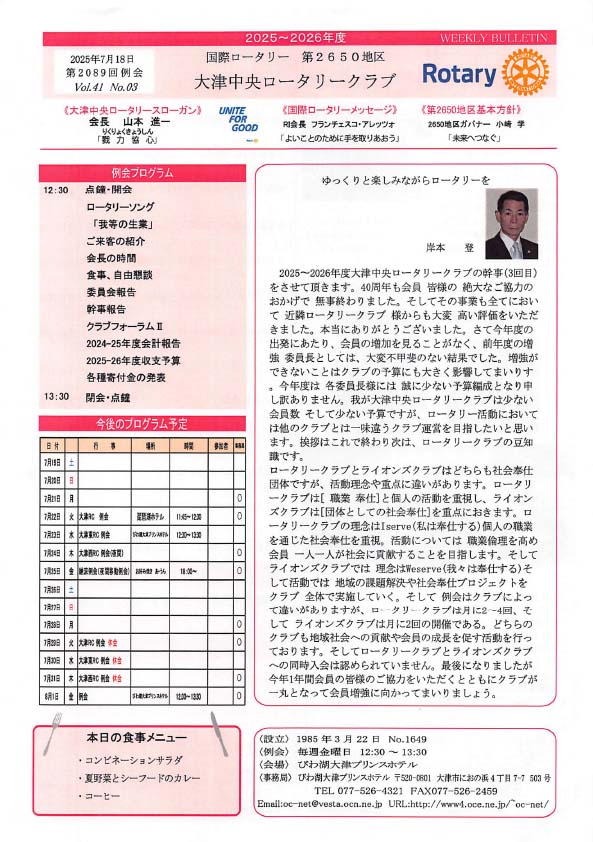 2025～2026年度
WEEKLY BULLETIN
2025年7月18日
第2089回例会
Vol.41 No.03
国際ロータリー 第2650地区
大津中央ロータリークラブ
Rotary
《大津中央ロータリースローガン》
会長 山本 進一
りくりょくきょうしん
「戮 力 協 心」
UNITE
FOR
GOOD
《国際ロータリーメッセージ》
RI会長 フランチェスコ・アレッツォ
「よいことのために手を取りあおう」
《第2650地区基本方針》
2650地区ガバナー 小﨑 学
「未来へつなぐ」
例会プログラム
12:30 点鐘・開会
ロータリーソング
「我等の生業」
ご来客の紹介
会長の時間
食事、自由懇談
委員会報告
幹事報告
クラブフォーラムⅡ
2024-25年度会計報告
2025-26年度収支予算
各種寄付金の発表
13:30 閉会・点鐘
今後のプログラム予定
日 付 行 事 場所 時間 参加者 事務局
7月19日 土
7月20日 日
7月21日 月 ○
7月22日 火 大津RC 例会 琵琶湖ホテル 11:45～12:30 ○
7月23日 水 大津東RC 例会 びわ湖大津プリンスホテル 12:30～13:30
7月24日 木 大津西RC 例会(夜間) ○
7月25日 金 納涼例会(夜間移動例会) 18:00～ ○
7月26日 土
7月27日 日
7月28日 月 ○
7月29日 火 大津RC 例会 休会 ○
7月30日 水 大津東RC 例会 休会
7月31日 木 大津西RC 例会 休会 ○
8月1日 金 例会 びわ湖大津プリンスホテル 12:30～13:30 ○
ゆっくりと楽しみながらロータリーを
岸本 登
2025～2026年度大津中央ロータリークラブの幹事(3回目)
をさせて頂きます。40周年も会員 皆様の 絶大なご協力の
おかげで 無事終わりました。そしてその事業も全てにおい
て 近隣ロータリークラブ 様からも大変 高い評価をいただ
きました。本当にありがとうございました。さて今年度の
出発にあたり、会員の増加を見ることがなく、前年度の増
強 委員長としては、大変不甲斐のない結果でした。増強が
できないことはクラブの予算にも大きく影響してまいりす
。今年度は 各委員長様には 誠に少ない予算編成となり申
し訳ありません。我が大津中央ロータリークラブは少ない
会員数 そして少ない予算ですが、ロータリー活動において
は他のクラブとは一味違うクラブ運営を目指したいと思い
ます。挨拶はこれで終わり次は、ロータリークラブの豆知
識です。
ロータリークラブとライオンズクラブはどちらも社会奉仕
団体ですが、活動理念や重点に違いがあります。ロータリ
ークラブは[ 職業 奉仕]と個人の活動を重視し、ライオン
ズクラブは[団体としての社会奉仕]を重点におきます。ロ
ータリークラブの理念はIserve(私は奉仕する)個人の職業
を通じた社会奉仕を重視。活動については 職業倫理を高め
会員 一人一人が社会に貢献することを目指します。そして
ライオンズクラブでは 理念はWeserve(我々は奉仕する)そ
して活動では 地域の課題解決や社会奉仕プロジェクトを
クラブ 全体で実施していく。そして 例会はクラブによっ
て違いがありますが、ロータリークラブは月に2－4回、そ
して ライオンズクラブは月に2回の開催である。どちらの
クラブも地域社会への貢献や会員の成長を促す活動を行っ
ております。そしてロータリークラブとライオンズクラブ
への同時入会は認められていません。最後になりましたが
今年1年間会員の皆様のご協力をいただくとともにクラブが
一丸となって会員増強に向かってまいりましょう。
本日の食事メニュー
・コンビネーションサラダ
・夏野菜とシーフードのカレー
・コーヒー
〈設立〉 1985年3月22日 No.1649
〈例会〉 毎週金曜日 12:30～13:30
〈会場〉 びわ湖大津プリンスホテル
〈事務局〉 びわ湖大津プリンスホテル 〒520-0801 大津市におの浜4丁目7-7 503号
TEL 077-526-4321 FAX077-526-2459
Email:oc-net@vesta.ocn.ne.jp URL:http://www4.oce.ne.jp/~oc-net/